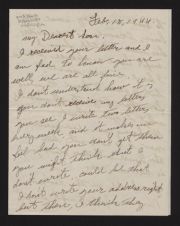 Feb. 18, 1944
My Dearest Son.
I received your letter and I
am glad to know you are
well, we are all fine.
I don't understand how is
you don't receive my letters
you see I write two letters
every week and it makes me
feel bad you don't get them
you might think that I
don't write, could be that
I don't write your address right
but there, I think they